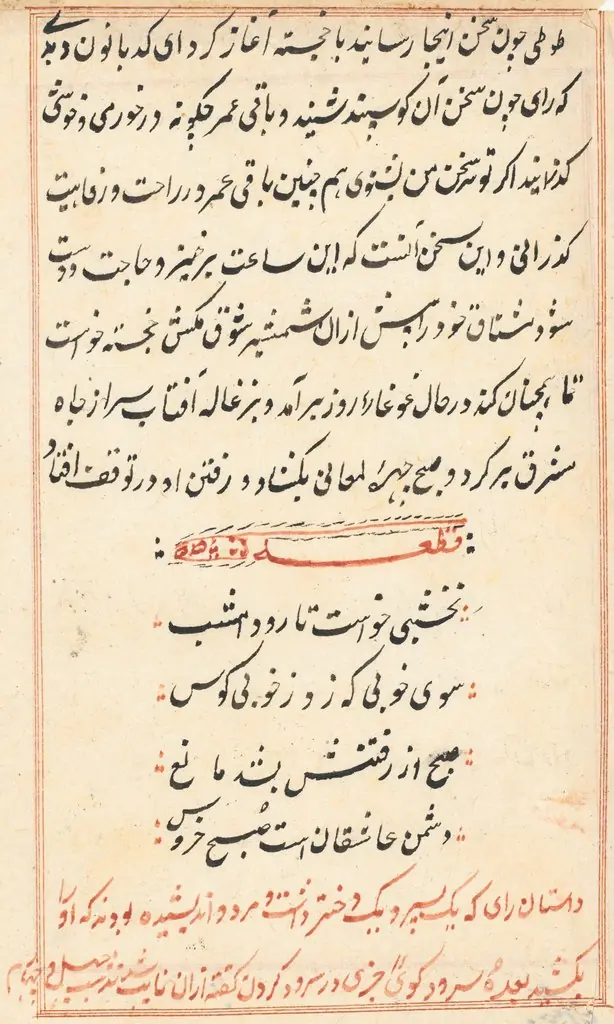 طوطی چون سخن اینجا رسانید با خجسته آغاز کرد ای کدبانو
که رای چون سخن آن کو پسند شنید و باقی عمر چگونه در خورمی و خوشی
کذرانید اکر تو نیز سخن من بشنوی هم چنین باقی عمر در راحت و رفاهیت
کذرانی و این سخن آنست که این ساعت برخیز و حاجت دوست
شو و مشتاق خود را پیش ازان شمشیر شوق مکش خجسته خواست
تا همچنان کند در حال غوغاء روز برآمد و بزغاله آفتاب سر از چاه
شرق برکرد و صبح چهرهٔ لمعانی بکشاد و رفتن او در توقف افتاد
قطعه
نخشبی خواست تا رود امشب
سوی خوبی که زو ز خوبی کوس
صبح از رفتنش بشد مانع
دشمن عاشقان است صبح خروس
داستان رای که یک پسر و یک دختر داشت و مردو اندیشیده بودند که او را
بکشید بعده سرود کوی چیزی در سرود کردن کفته ازان تایب شدند